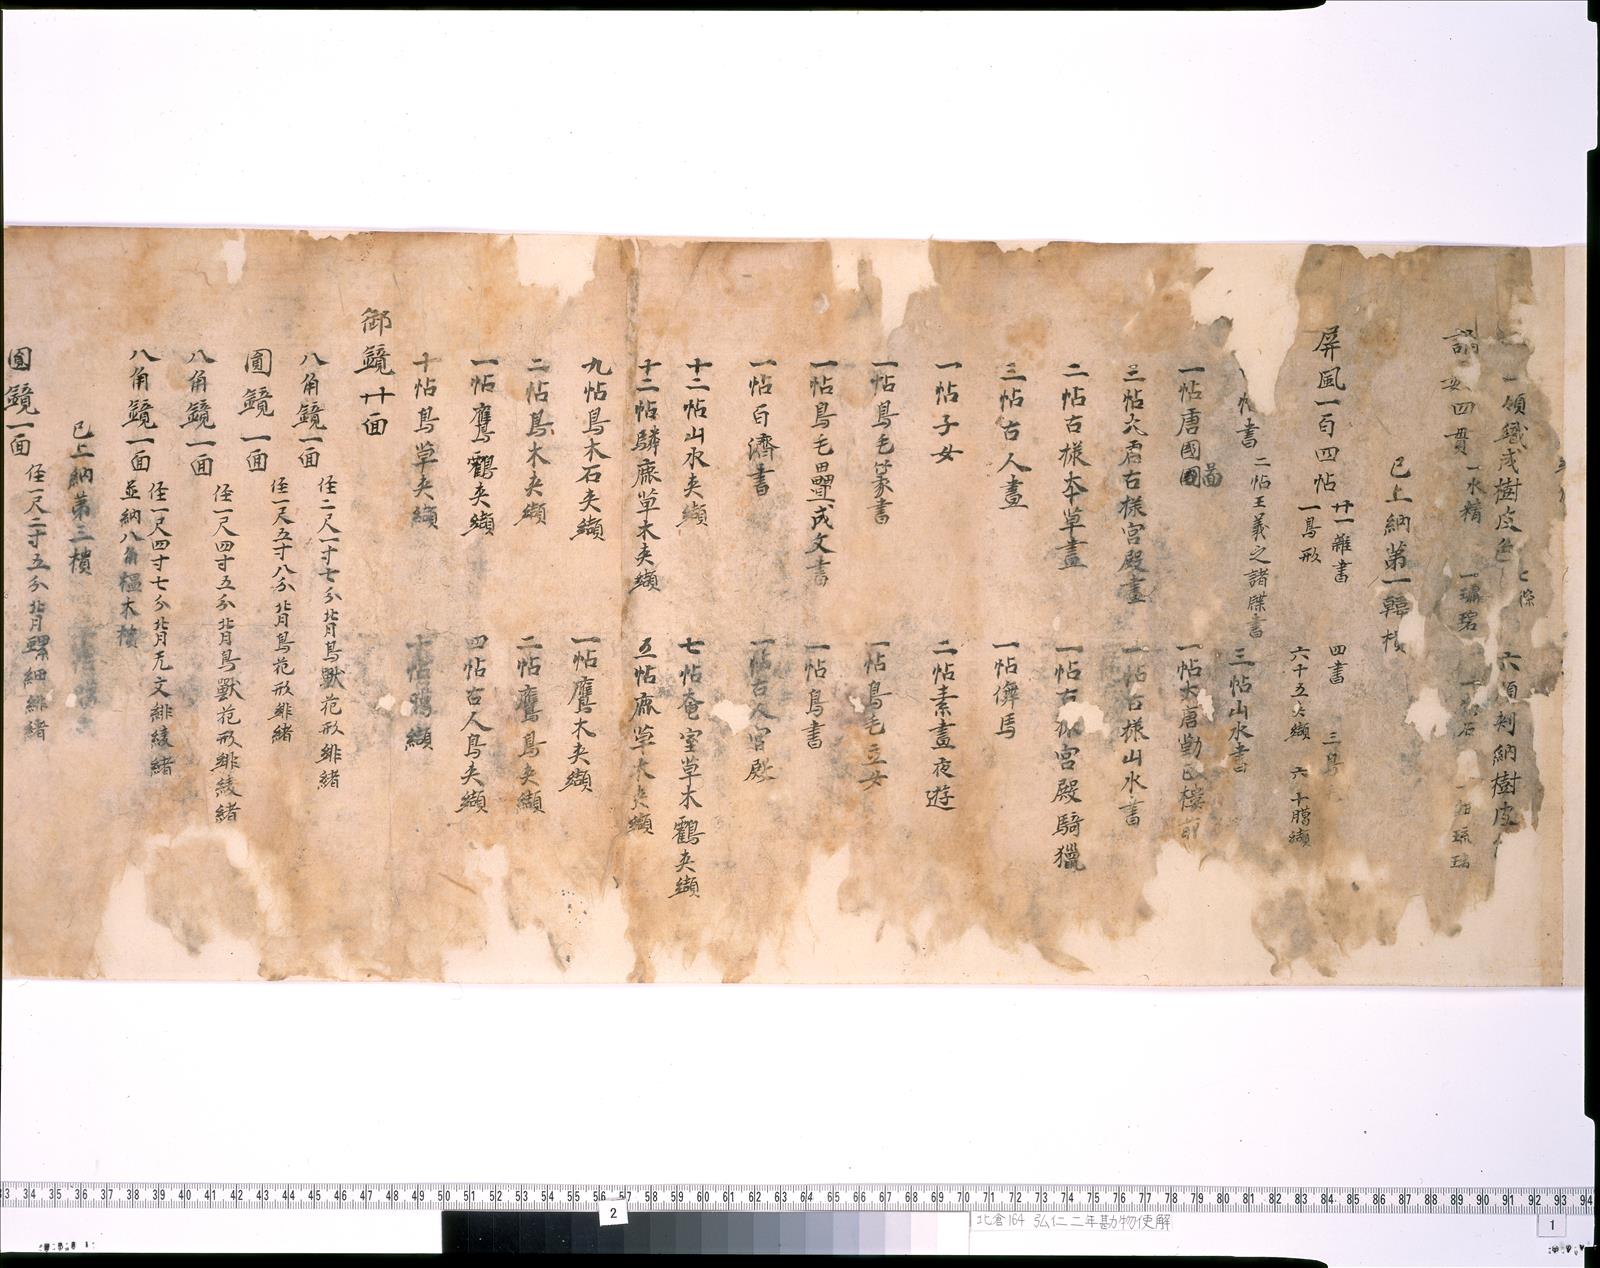 一領織成樹皮色 七條 六領刺納樹皮
誦数四貫 一水精 一琥碧 一銀石 一紺琉璃
已上納第一韓櫃
屏風一百四帖 廿一雜畫 四書 三鳥毛
一鳥形 六十五夾纈 六十﨟纈
帖書 二帖王羲之諸牒書 三帖山水畫
一帖唐國圖 一帖大唐勤政樓前
三帖大唐古様宮殿畫 一帖古様山水畫
二帖古様本草畫 一帖古様宮殿騎獵
三帖古人畫 一帖儛馬
一帖子女 二帖素畫夜遊
一帖鳥毛篆書 一帖鳥毛立女
一帖鳥毛疊成文書 一帖鳥書
一帖百濟畫 一帖古人宮殿
十二帖山水夾纈 七帖菴室草木鶴夾纈
十二帖驎鹿草木夾纈 五帖鹿草木夾纈
九帖鳥木石夾纈 一帖鷹木夾纈
二帖鳥木夾纈 二帖鷹鳥夾纈
一帖鷹鶴夾纈 四帖古人鳥夾纈
十帖鳥草夾纈 十帖鴉纈
御鏡廿面
八角鏡一面 徑二尺一寸七分背鳥獸花形緋緒
圓鏡一面 徑一尺五寸八分背鳥花形緋緒
八角鏡一面 徑一尺四寸五分背鳥獸花形緋綾緒
八角鏡一面 徑一尺四寸七分背无文緋綾緒
並納八角榲木樻
已上納第三樻
圓鏡一面 徑一尺二寸五分背螺鈿緋緒
33 34 35 36 37 38 39 40 41 42 43 44 45 46 47 48 49 50 51 52 53 54 55 56 57 58 59 60 61 62 63 64 65 66 67 68 69 70 71 72 73 74 75 76 77 78 79 80 81 82 83 84 85 86 87 88 89 90 91 92 93 94
2
北倉164 弘仁二年勘物使解
1